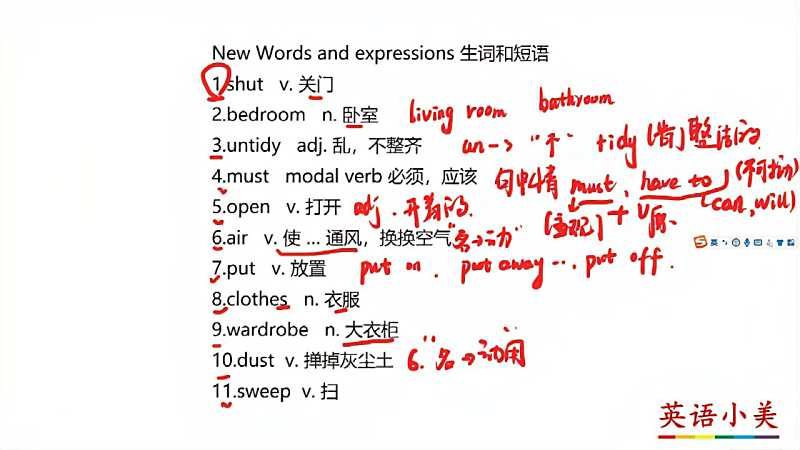 New Words and expressions 生词和短语
1.shut v. 关门
2.bedroom n. 卧室 living room bathroom
3.untidy adj. 乱，不整齐 un-> "不" tidy 整洁的
4.must modal verb 必须，应该 must, have to
5.open v. 打开 adj. 开着的 (主观) + V原 (can, will)
6.air v. 使 ... 通风，换换空气 "名->动"
7.put v. 放置 put on, put away ... put off.
8.clothes n. 衣服
9.wardrobe n. 大衣柜
10.dust v. 掸掉灰尘土 6. "名->动用
11.sweep v. 扫
英
英语小美